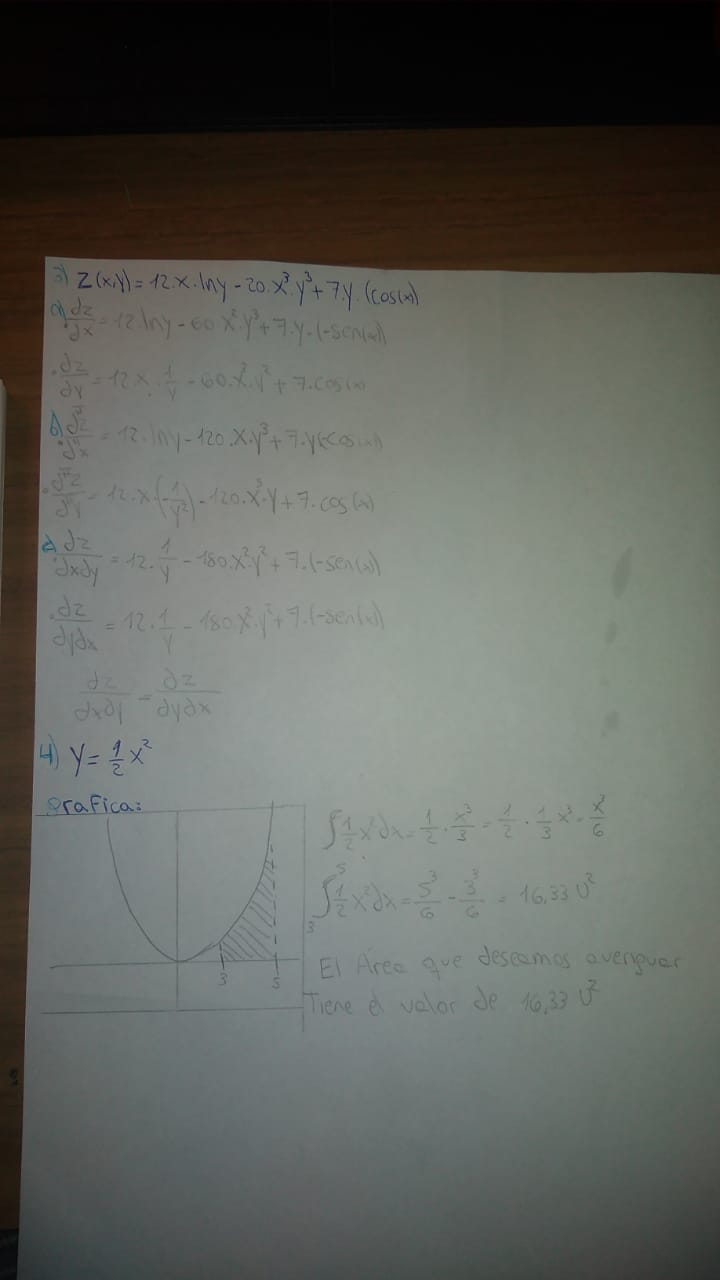 3) Z(x,y) = 12.x.lny - 20.x³.y³ + 7.y.(cos(x)
a) ∂z/∂x = 12.lny - 60.x².y³ + 7.y.(-sen(x))
∂z/∂y = 12x.1/y - 60.x³.y² + 7.cos(x)
b) ∂²z/∂²x = 12.lny - 120.x.y³ + 7.y(-cos(x))
∂²z/∂²y = 12.x.(-1/y²) - 120.x³.y + 7.cos(x)
c) ∂z/∂x∂y = 12.1/y - 180.x².y² + 7.(-sen(x))
∂z/∂y∂x = 12.1/y - 180.x².y² + 7.(-sen(x))
∂z/∂x∂y = ∂z/∂y∂x
4) Y = 1/2 x²
grafica:
3 5
∫1/2 x²dx = 1/2 . x³/3 = 1/2 . 1/3 x³ = x³/6
∫₃⁵ 1/2 x²dx = 5³/6 - 3³/6 = 16,33 U²
El Área que deseamos averiguar
Tiene el valor de 16,33 U²